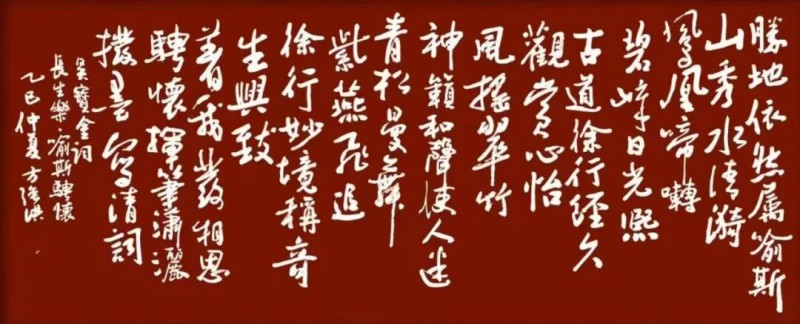 勝地依然属喻斯
山秀水清漪
鳳凰啼囀
碧峰日光熙
古道徐行經久
觀賞心怡
風搖翠竹
神籟和聲使人迷
青松曼舞
紫燕飛追
徐行妙境稱奇
生興致
着我發相思
騁懷揮筆瀟灑
撥墨寫清詞
吴寶金詞
長生樂 喻斯騁懷
乙巳仲夏 方